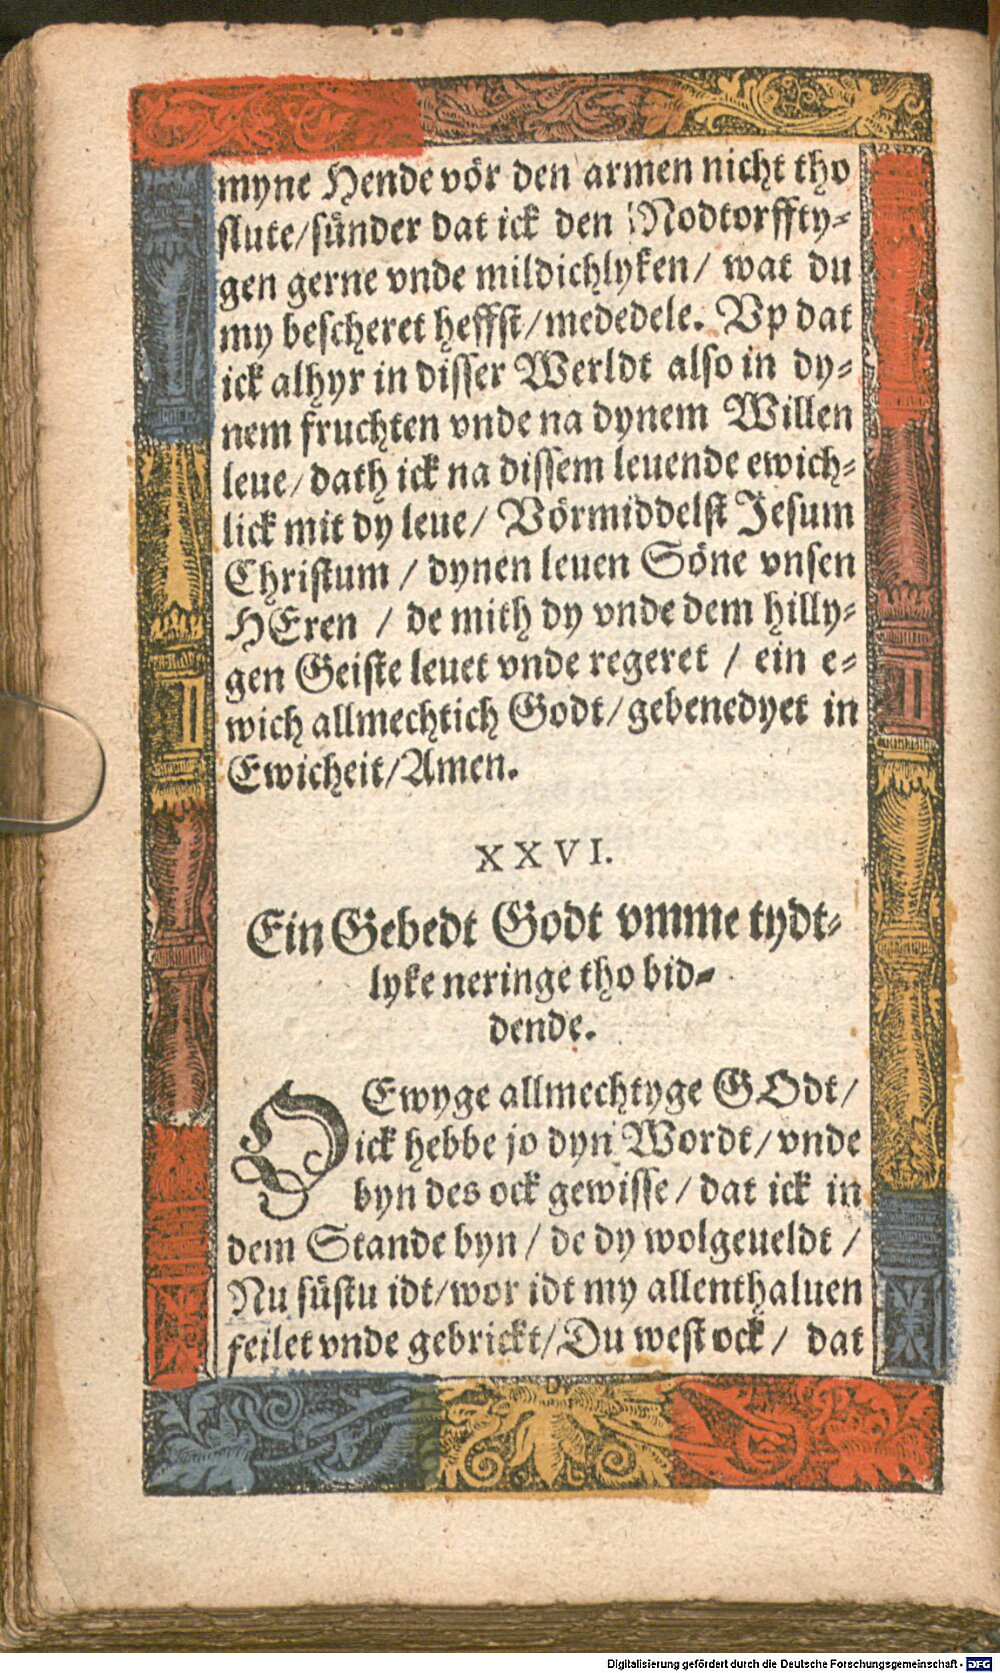 myne Hende vör den armen nicht tho
slute/sünder dat ick den Nodtorffty-
gen gerne vnde mildichlyken/ wat du
my bescheret heffst/mededele. Vp dat
ick alhyr in disser Werldt also in dy-
nem fruchten vnde na dynem Willen
leue/dath ick na dissem leuende ewich-
lick mit dy leue/ Vörmiddelst Jesum
Christum / dynen leuen Söne vnsen
HEren / de mith dy vnde dem hilly-
gen Geiste leuet vnde regeret / ein e-
wich allmechtich Godt/gebenedyet in
Ewicheit/Amen.
XXVI.
Ein Gebedt Godt vmme tydt-
lyke neringe tho bid-
dende.
O Ewyge allmechtyge GOdt/
ick hebbe jo dyn Wordt/vnde
byn des ock gewisse/dat ick in
dem Stande byn/de dy wolgeueldt /
Nu süstu idt/wor idt my allenthaluen
feilet vnde gebrickt/Du west ock/ dat
Digitalisierung gefördert durch die Deutsche Forschungsgemeinschaft - DFG